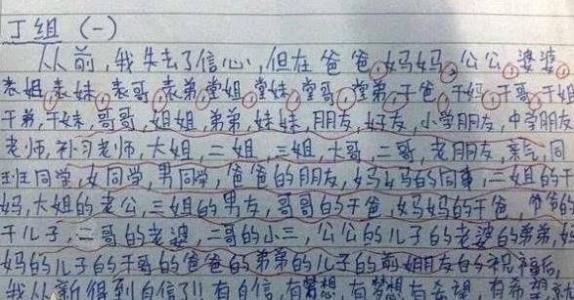 丁组 (一)
从前,我失去了信心,但在爸爸,妈妈,公公,婆婆,
表姐,表妹,表哥,表弟,堂姐,堂妹,堂哥,堂弟,干爸,干妈,干哥,干姐
干弟,干妹,哥哥,姐姐,弟弟,妹妹,朋友,好友,小学朋友,中学朋友
老师,补习老师,大姐,二姐,三姐,大哥,二哥,老朋友,亲气,同
班同学,女同学,男同学,爸爸的朋友,妈妈的同事,二姐的干
妈,大姐的老公,三姐的男友,哥哥的干爸,妈妈的干爸,爸爸的
干儿子,二哥的老婆,二哥的小三,公公的儿子的老婆的弟弟,妈
妈的儿子的干哥的爸爸的弟弟的儿子的前姐朋友的祝福后,
我从新得到自信了!!有自信,有梦想,有梦想有希望,有希望